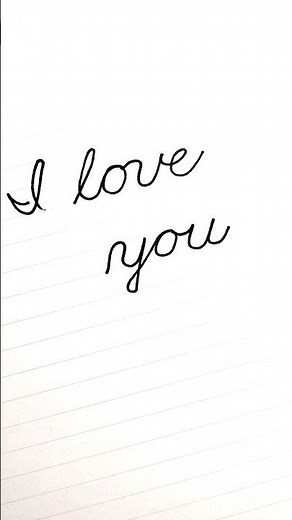 I love
you